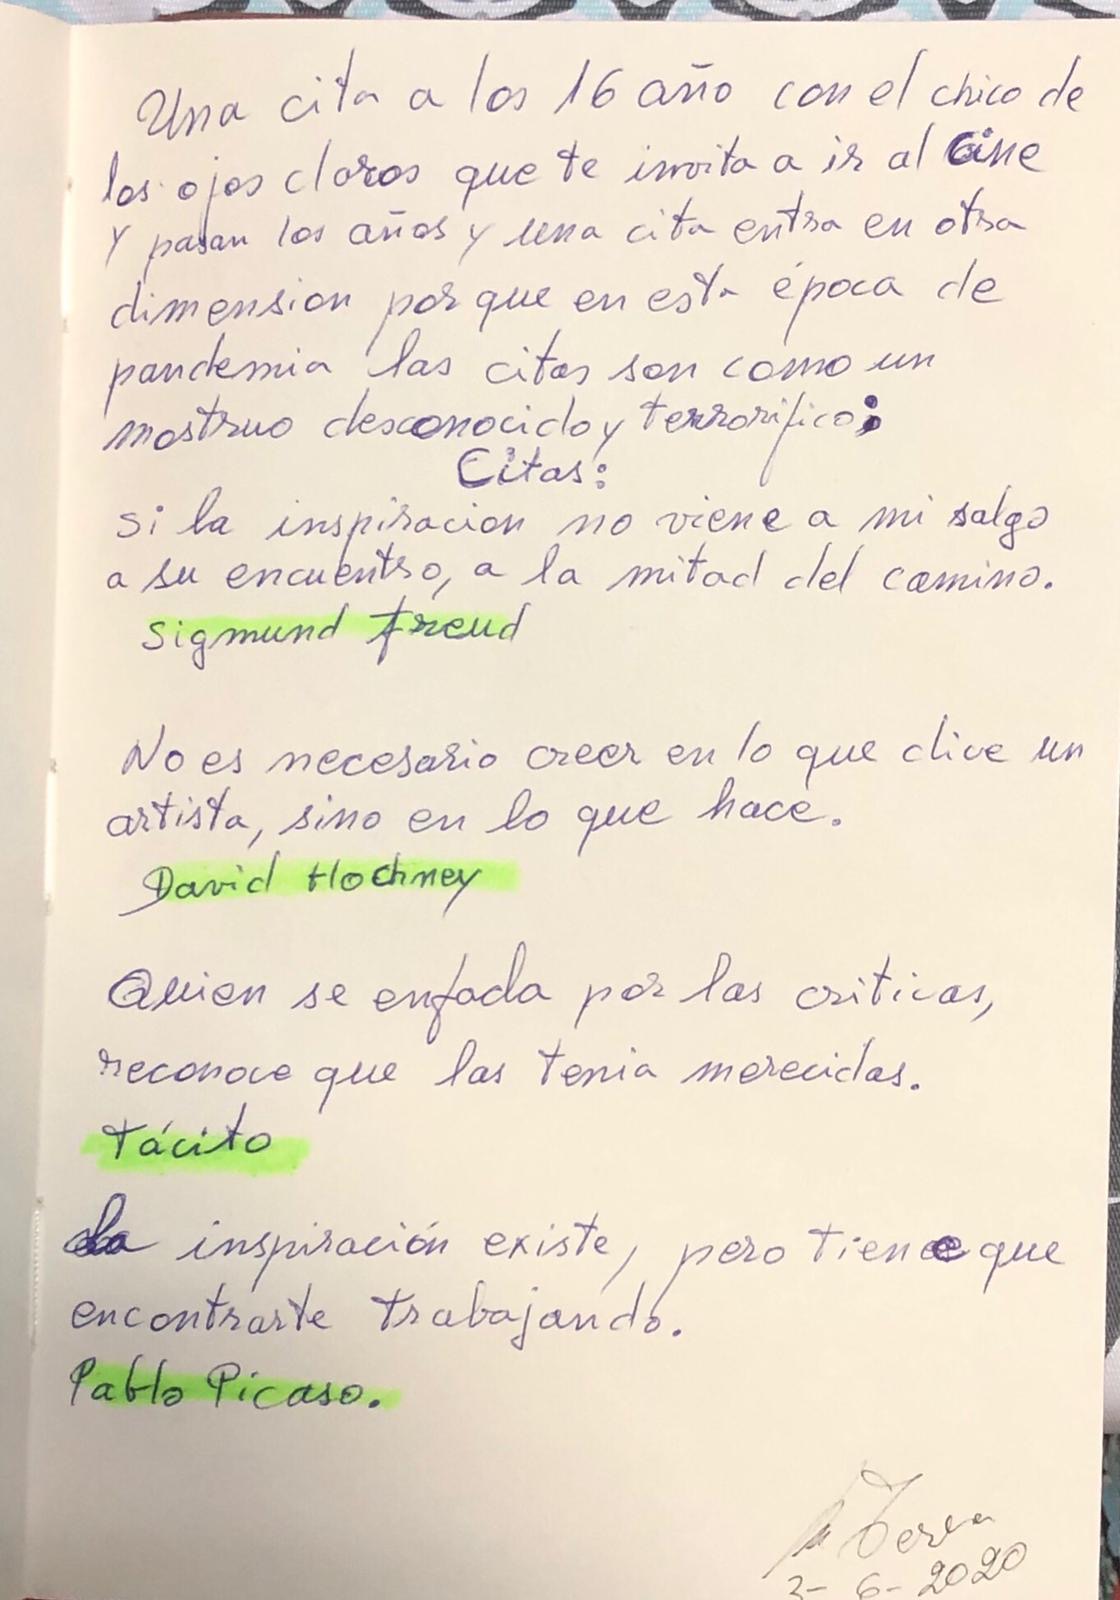 Una cita a los 16 año con el chico de
los ojos claros que te invita a ir al cine
y pasan los años y una cita entra en otra
dimension porque en esta época de
pandemia las citas son como un
mostruo desconocido y terrorifico;
Citas:
Si la inspiracion no viene a mi salgo
a su encuentro, a la mitad del camino.
Sigmund freud
No es necesario creer en lo que dice un
artista, sino en lo que hace.
David Hochney
Quien se enfada por las criticas,
reconoce que las tenia merecidas.
Tácito
La inspiración existe, pero tiene que
encontrarte trabajando.
Pablo Picaso.
3-6-2020